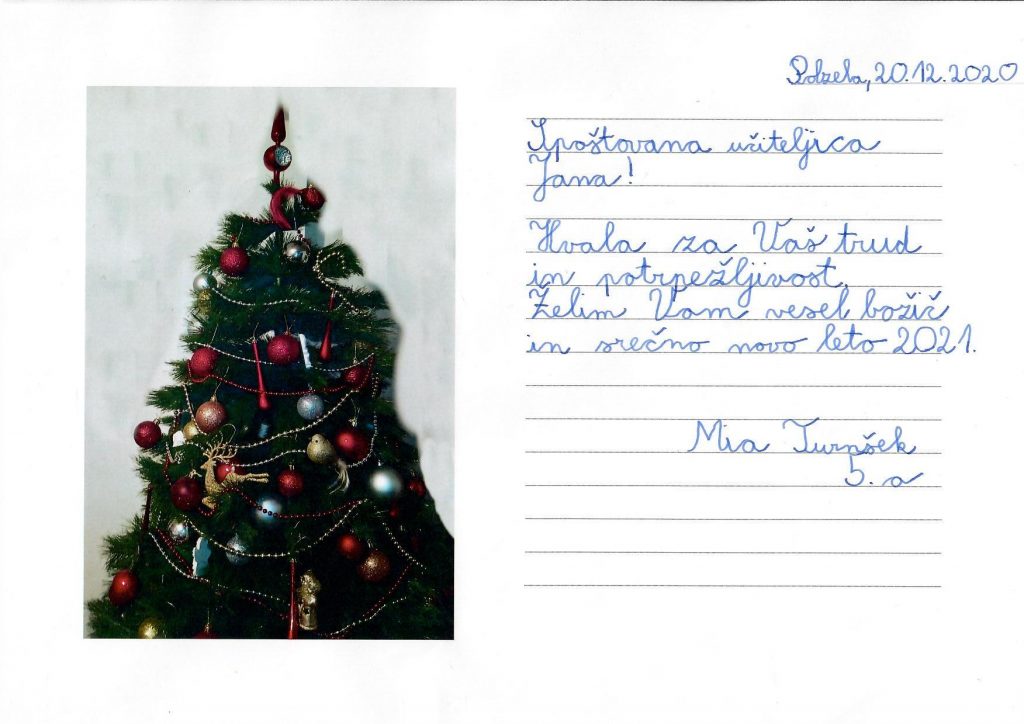 Polzela, 20.12.2020
Spoštovana učiteljica
Jana!
Hvala za Vaš trud
in potrpežljivost.
Želim Vam vesel božič
in srečno novo leto 2021.
Mia Turnšek
5. a